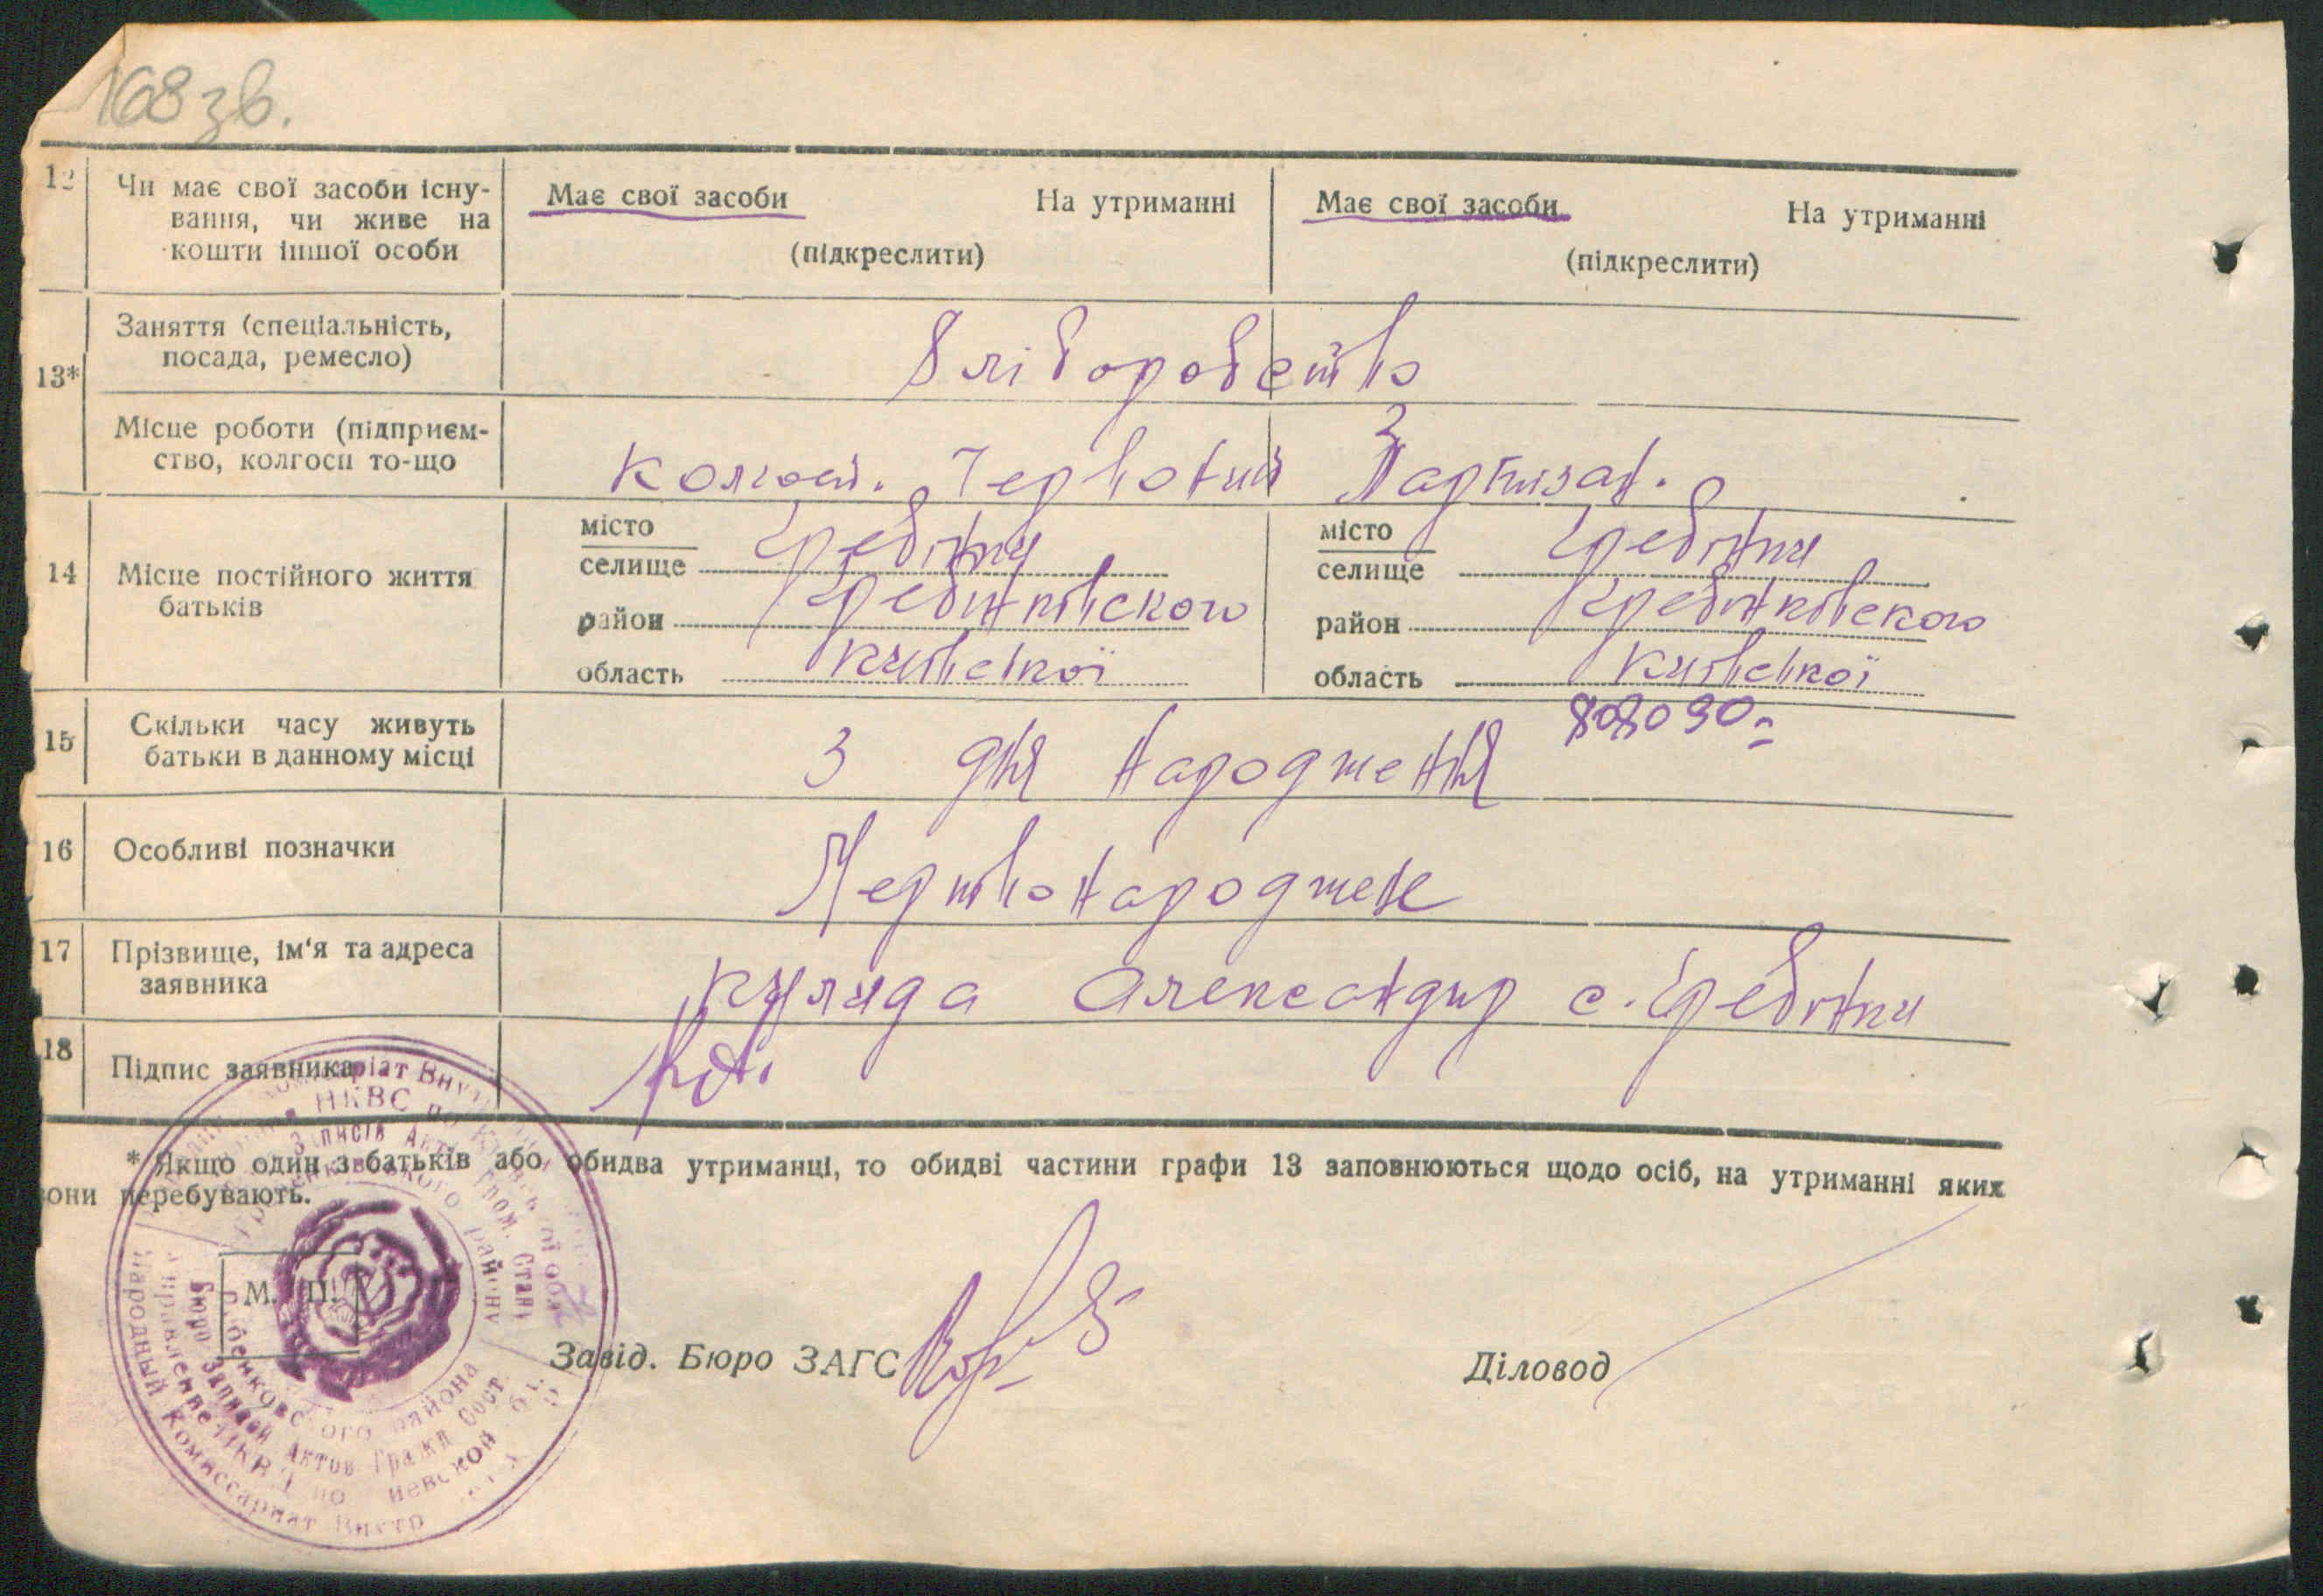 168 зв.
12 Чи має свої засоби існу- Має свої засоби На утриманні Має свої засоби На утриманні
вання, чи живе на
кошти іншої особи (підкреслити) (підкреслити)
13* Заняття (спеціальність,
посада, ремесло) Хліборобство
Місце роботи (підприєм-
ство, колгосп то-що Колгосп. Червоний Партизан.
14 Місце постійного життя
батьків
місто
селище Гребінки
район Гребінківского
область Київської
місто
селище Гребінки
район Гребінківского
область Київської
808090
15 Скільки часу живуть
батьки в данному місці З дня народження
16 Особливі позначки Мертвонароджене
17 Прізвище, ім'я та адреса
заявника Кулида Александр с. Гребінки
18 Підпис заявника
* Якщо один з батьків або обидва утриманці, то обидві частини графи 13 заповнюються щодо осіб, на утриманні яких
вони перебувають.
М. П.
Завід. Бюро ЗАГС Діловод
НКВС по Київській обл.
Записів Актів Гром. Стану
Гребенківського району
Народный Комиссариат Внутр
Управление НКВД по Киевской обл.
Бюро Записей Актов Гражд. Сост.
Гребенковского района